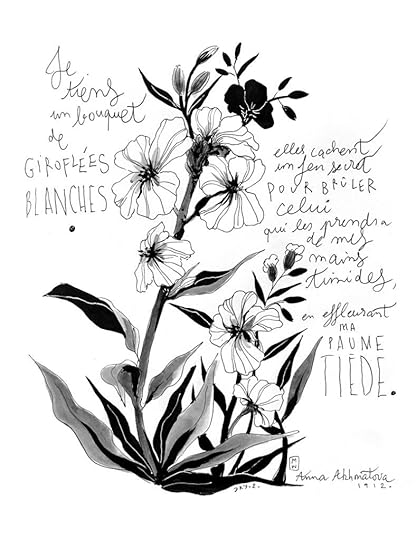 Je
tiens
un bouquet
de
GIROFLÉES
BLANCHES
.
elles cachent
un feu secret
POUR BRÛLER
celui
qui les prendra
de mes
mains
timides,
en effleurant
MA
PAUME
TIÈDE.
Anna Akhmatova
1912.